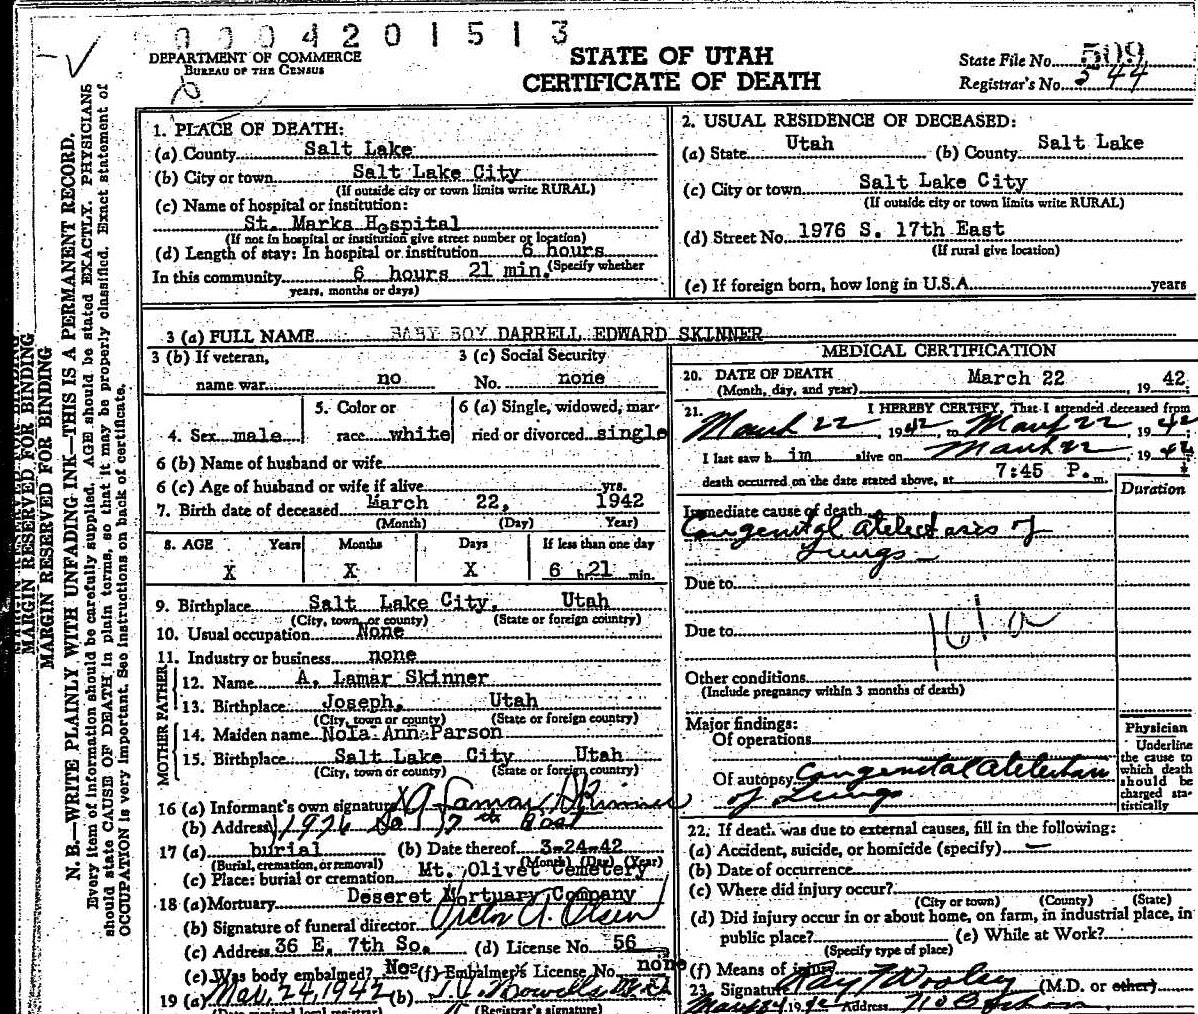 0004201513
DEPARTMENT OF COMMERCE
BUREAU OF THE CENSUS
STATE OF UTAH
CERTIFICATE OF DEATH
State File No. 509
Registrar's No. 544
MARGIN RESERVED FOR BINDING
MARGIN RESERVED FOR BINDING
N. B.—WRITE PLAINLY WITH UNFADING INK—THIS IS A PERMANENT RECORD.
Every item of information should be carefully supplied. AGE should be stated EXACTLY. PHYSICIANS
should state CAUSE OF DEATH in plain terms, so that it may be properly classified. Exact statement of
OCCUPATION is very important. See instructions on back of certificate.
1. PLACE OF DEATH:
(a) County Salt Lake
(b) City or town Salt Lake City
(If outside city or town limits write RURAL)
(c) Name of hospital or institution:
St. Marks Hospital
(If not in hospital or institution give street number or location)
(d) Length of stay: In hospital or institution 6 hours
(Specify whether
In this community 6 hours 21 min.
years, months or days)
2. USUAL RESIDENCE OF DECEASED:
(a) State Utah (b) County Salt Lake
(c) City or town Salt Lake City
(If outside city or town limits write RURAL)
(d) Street No. 1976 S. 17th East
(If rural give location)
(e) If foreign born, how long in U.S.A. years
3 (a) FULL NAME BABY BOY DARRELL EDWARD SKINNER
3 (b) If veteran, 3 (c) Social Security
name war no No. none
4. Sex male
5. Color or
race white
6 (a) Single, widowed, mar-
ried or divorced single
6 (b) Name of husband or wife
6 (c) Age of husband or wife if alive yrs.
7. Birth date of deceased March 22, 1942
(Month) (Day) Year)
8. AGE Years Months Days If less than one day
X X X 6 hr. 21 min.
9. Birthplace Salt Lake City, Utah
(City, town, or county) (State or foreign country)
10. Usual occupation None
11. Industry or business none
FATHER
12. Name A. Lamar Skinner
13. Birthplace Joseph, Utah
(City, town or county) (State or foreign country)
MOTHER
14. Maiden name Nola Ann Parson
15. Birthplace Salt Lake City Utah
(City, town or county) (State or foreign country)
16 (a) Informant's own signature A Lamar Skinner
(b) Address 1976 So 17th East
17 (a) burial (b) Date thereof 3-24-42
(Burial, cremation, or removal) (Month) (Day) (Year)
(c) Place: burial or cremation Mt. Olivet Cemetery
18 (a) Mortuary Deseret Mortuary Company
(b) Signature of funeral director Victor A. Olsen
(c) Address 36 E. 7th So. (d) License No. 56
(e) Was body embalmed? No (f) Embalmer's License No. none
19 (a) Mar. 24, 1942 (b)
(Date received local registrar) (Registrar's signature)
MEDICAL CERTIFICATION
20. DATE OF DEATH
(Month, day, and year) March 22 19 42
21. I HEREBY CERTIFY, That I attended deceased from
March 22, 1942, to March 22 1942
I last saw him alive on March 22 1942
death occurred on the date stated above, at 7:45 P. m.
Duration
Immediate cause of death
Congenital Atelectasis of
Lungs
Due to
161a
Due to
Other conditions
(Include pregnancy within 3 months of death)
Major findings:
Of operations
Of autopsy Congenital Atelectasis
of Lungs
Physician
Underline
the cause to
which death
should be
charged sta-
tistically
22. If death was due to external causes, fill in the following:
(a) Accident, suicide, or homicide (specify) —
(b) Date of occurrence
(c) Where did injury occur?
(City or town) (County) (State)
(d) Did injury occur in or about home, on farm, in industrial place, in
public place? (e) While at Work?
(Specify type of place)
(f) Means of injury
23. Signature Ray T Wooley (M.D. or other)
Address